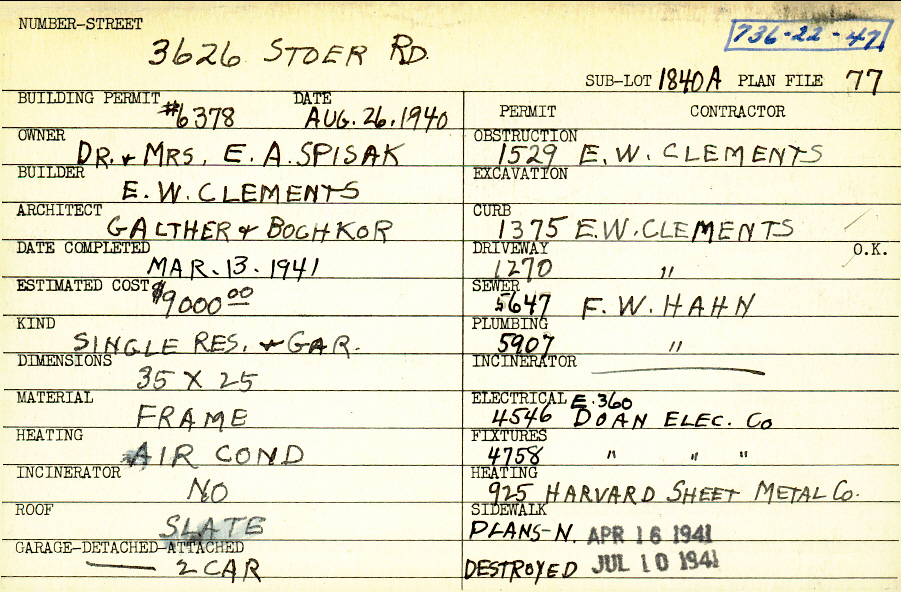 NUMBER-STREET
3626 STOER RD.
736-22-47
SUB-LOT 1840A PLAN FILE 77
BUILDING PERMIT #6378 DATE AUG. 26, 1940
OWNER DR. & MRS. E. A. SPISAK
BUILDER E. W. CLEMENTS
ARCHITECT GALTHER & BOCHKOR
DATE COMPLETED MAR. 13. 1941
ESTIMATED COST $9000 00
KIND SINGLE RES. & GAR.
DIMENSIONS 35 X 25
MATERIAL FRAME
HEATING AIR COND
INCINERATOR NO
ROOF SLATE
GARAGE-DETACHED-ATTACHED 2 CAR
PERMIT CONTRACTOR
OBSTRUCTION 1529 E. W. CLEMENTS
EXCAVATION
CURB 1375 E.W. CLEMENTS
DRIVEWAY 1270 " O.K.
SEWER 5647 F. W. HAHN
PLUMBING 5907 "
INCINERATOR
ELECTRICAL E.360
4546 DOAN ELEC. Co
FIXTURES 4758 " " "
HEATING 925 HARVARD SHEET METAL Co.
SIDEWALK
PLANS-N. APR 16 1941
DESTROYED JUL 10 1941